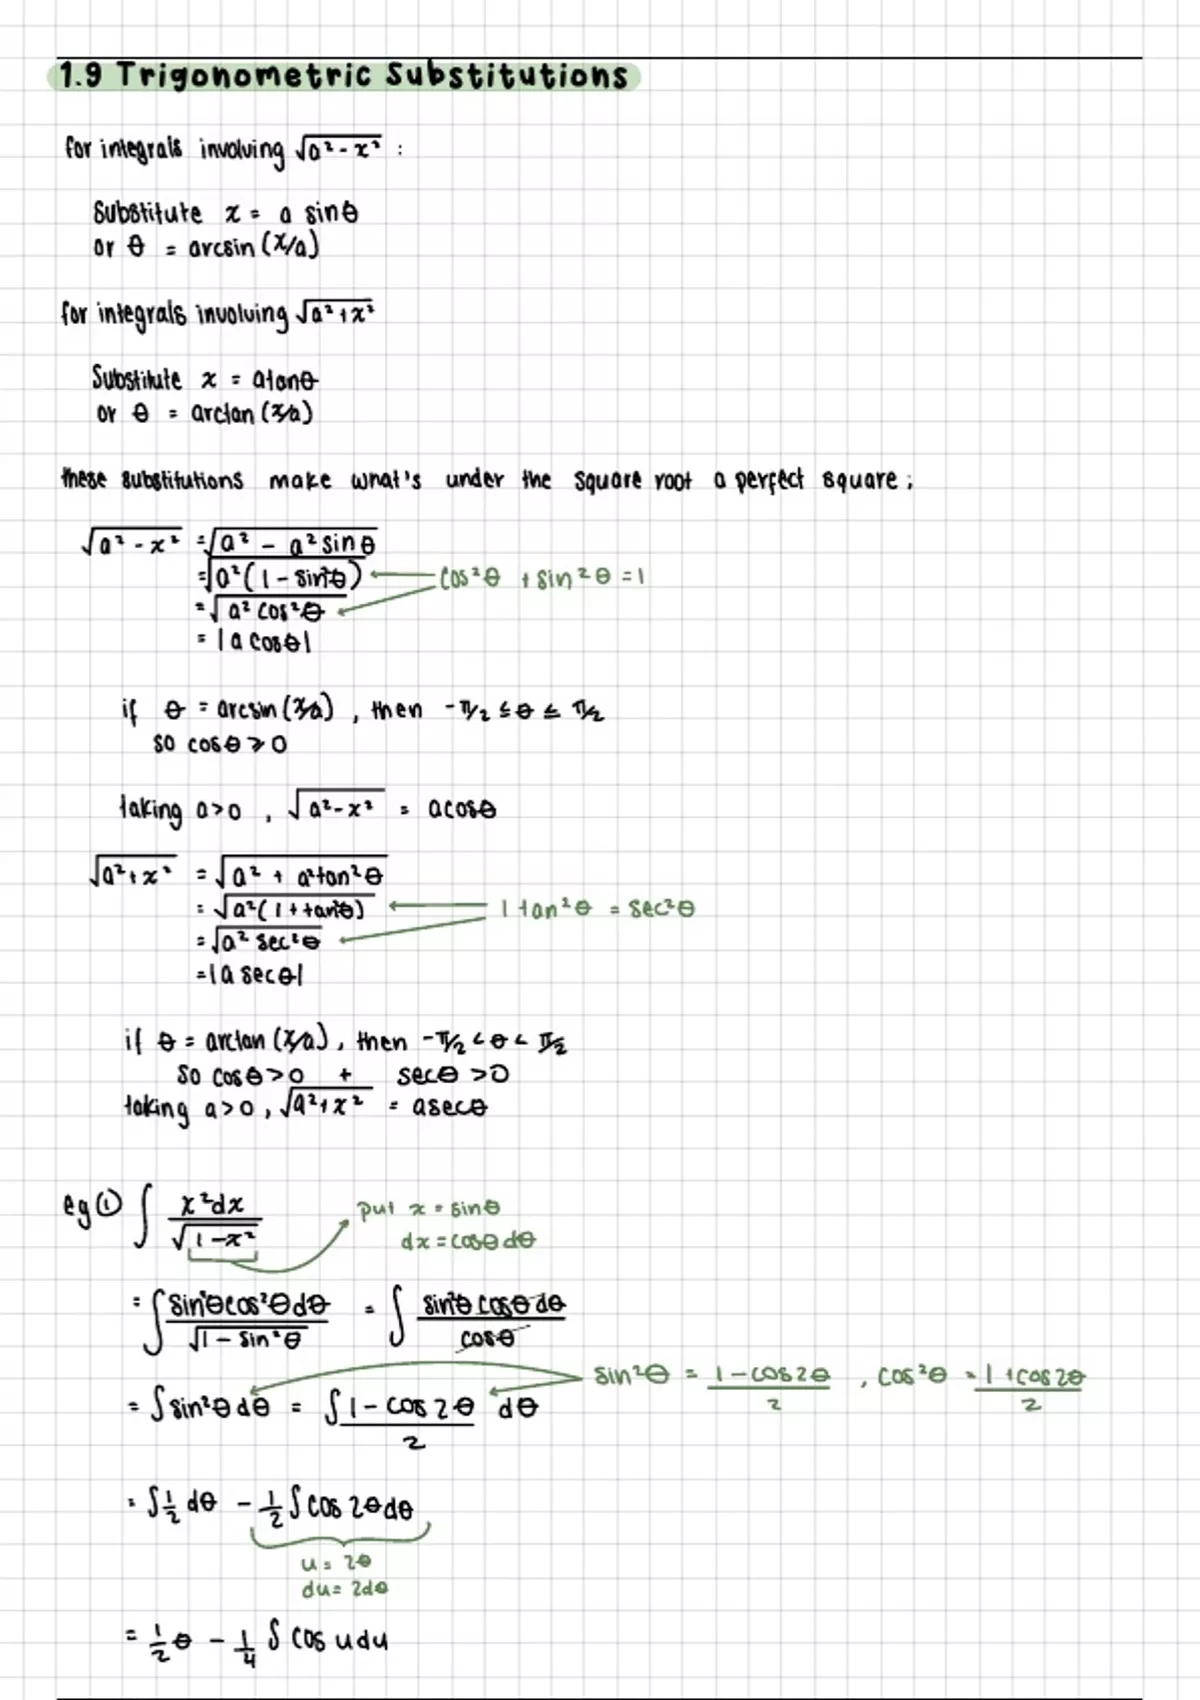 1.9 Trigonometric Substitutions
for integrals involving √(a² - x²) :
Substitute x = a sinθ
or θ = arcsin (x/a)
for integrals involving √(a² + x²)
Substitute x = a tanθ
or θ = arctan (x/a)
these substitutions make what's under the square root a perfect square ;
√(a² - x²) = √(a² - a² sin θ)
= √(a² (1 - sin²θ)) cos²θ + sin²θ = 1
= √(a² cos²θ)
= |a cosθ|
if θ = arcsin (x/a) , then -π/2 ≤ θ ≤ π/2
so cosθ ≥ 0
taking a>0 , √(a² - x²) = a cosθ
√(a² + x²) = √(a² + a² tan²θ)
= √(a² (1 + tan²θ)) 1 + tan²θ = sec²θ
= √(a² sec²θ)
= |a secθ|
if θ = arctan (x/a) , then -π/2 < θ < π/2
so cosθ > 0 + secθ > 0
taking a>0 , √(a² + x²) = a secθ
eg ① ∫ x² dx / √(1 - x²) put x = sinθ
dx = cosθ dθ
= ∫ sin²θ cos²θ dθ / √(1 - sin²θ) = ∫ sin²θ cosθ dθ / cosθ
sin²θ = (1 - cos 2θ)/2 , cos²θ = (1 + cos 2θ)/2
= ∫ sin²θ dθ = ∫ (1 - cos 2θ)/2 dθ
= ∫ ½ dθ - ½ ∫ cos 2θ dθ
u = 2θ
du = 2dθ
= ½ θ - ¼ ∫ cos u du